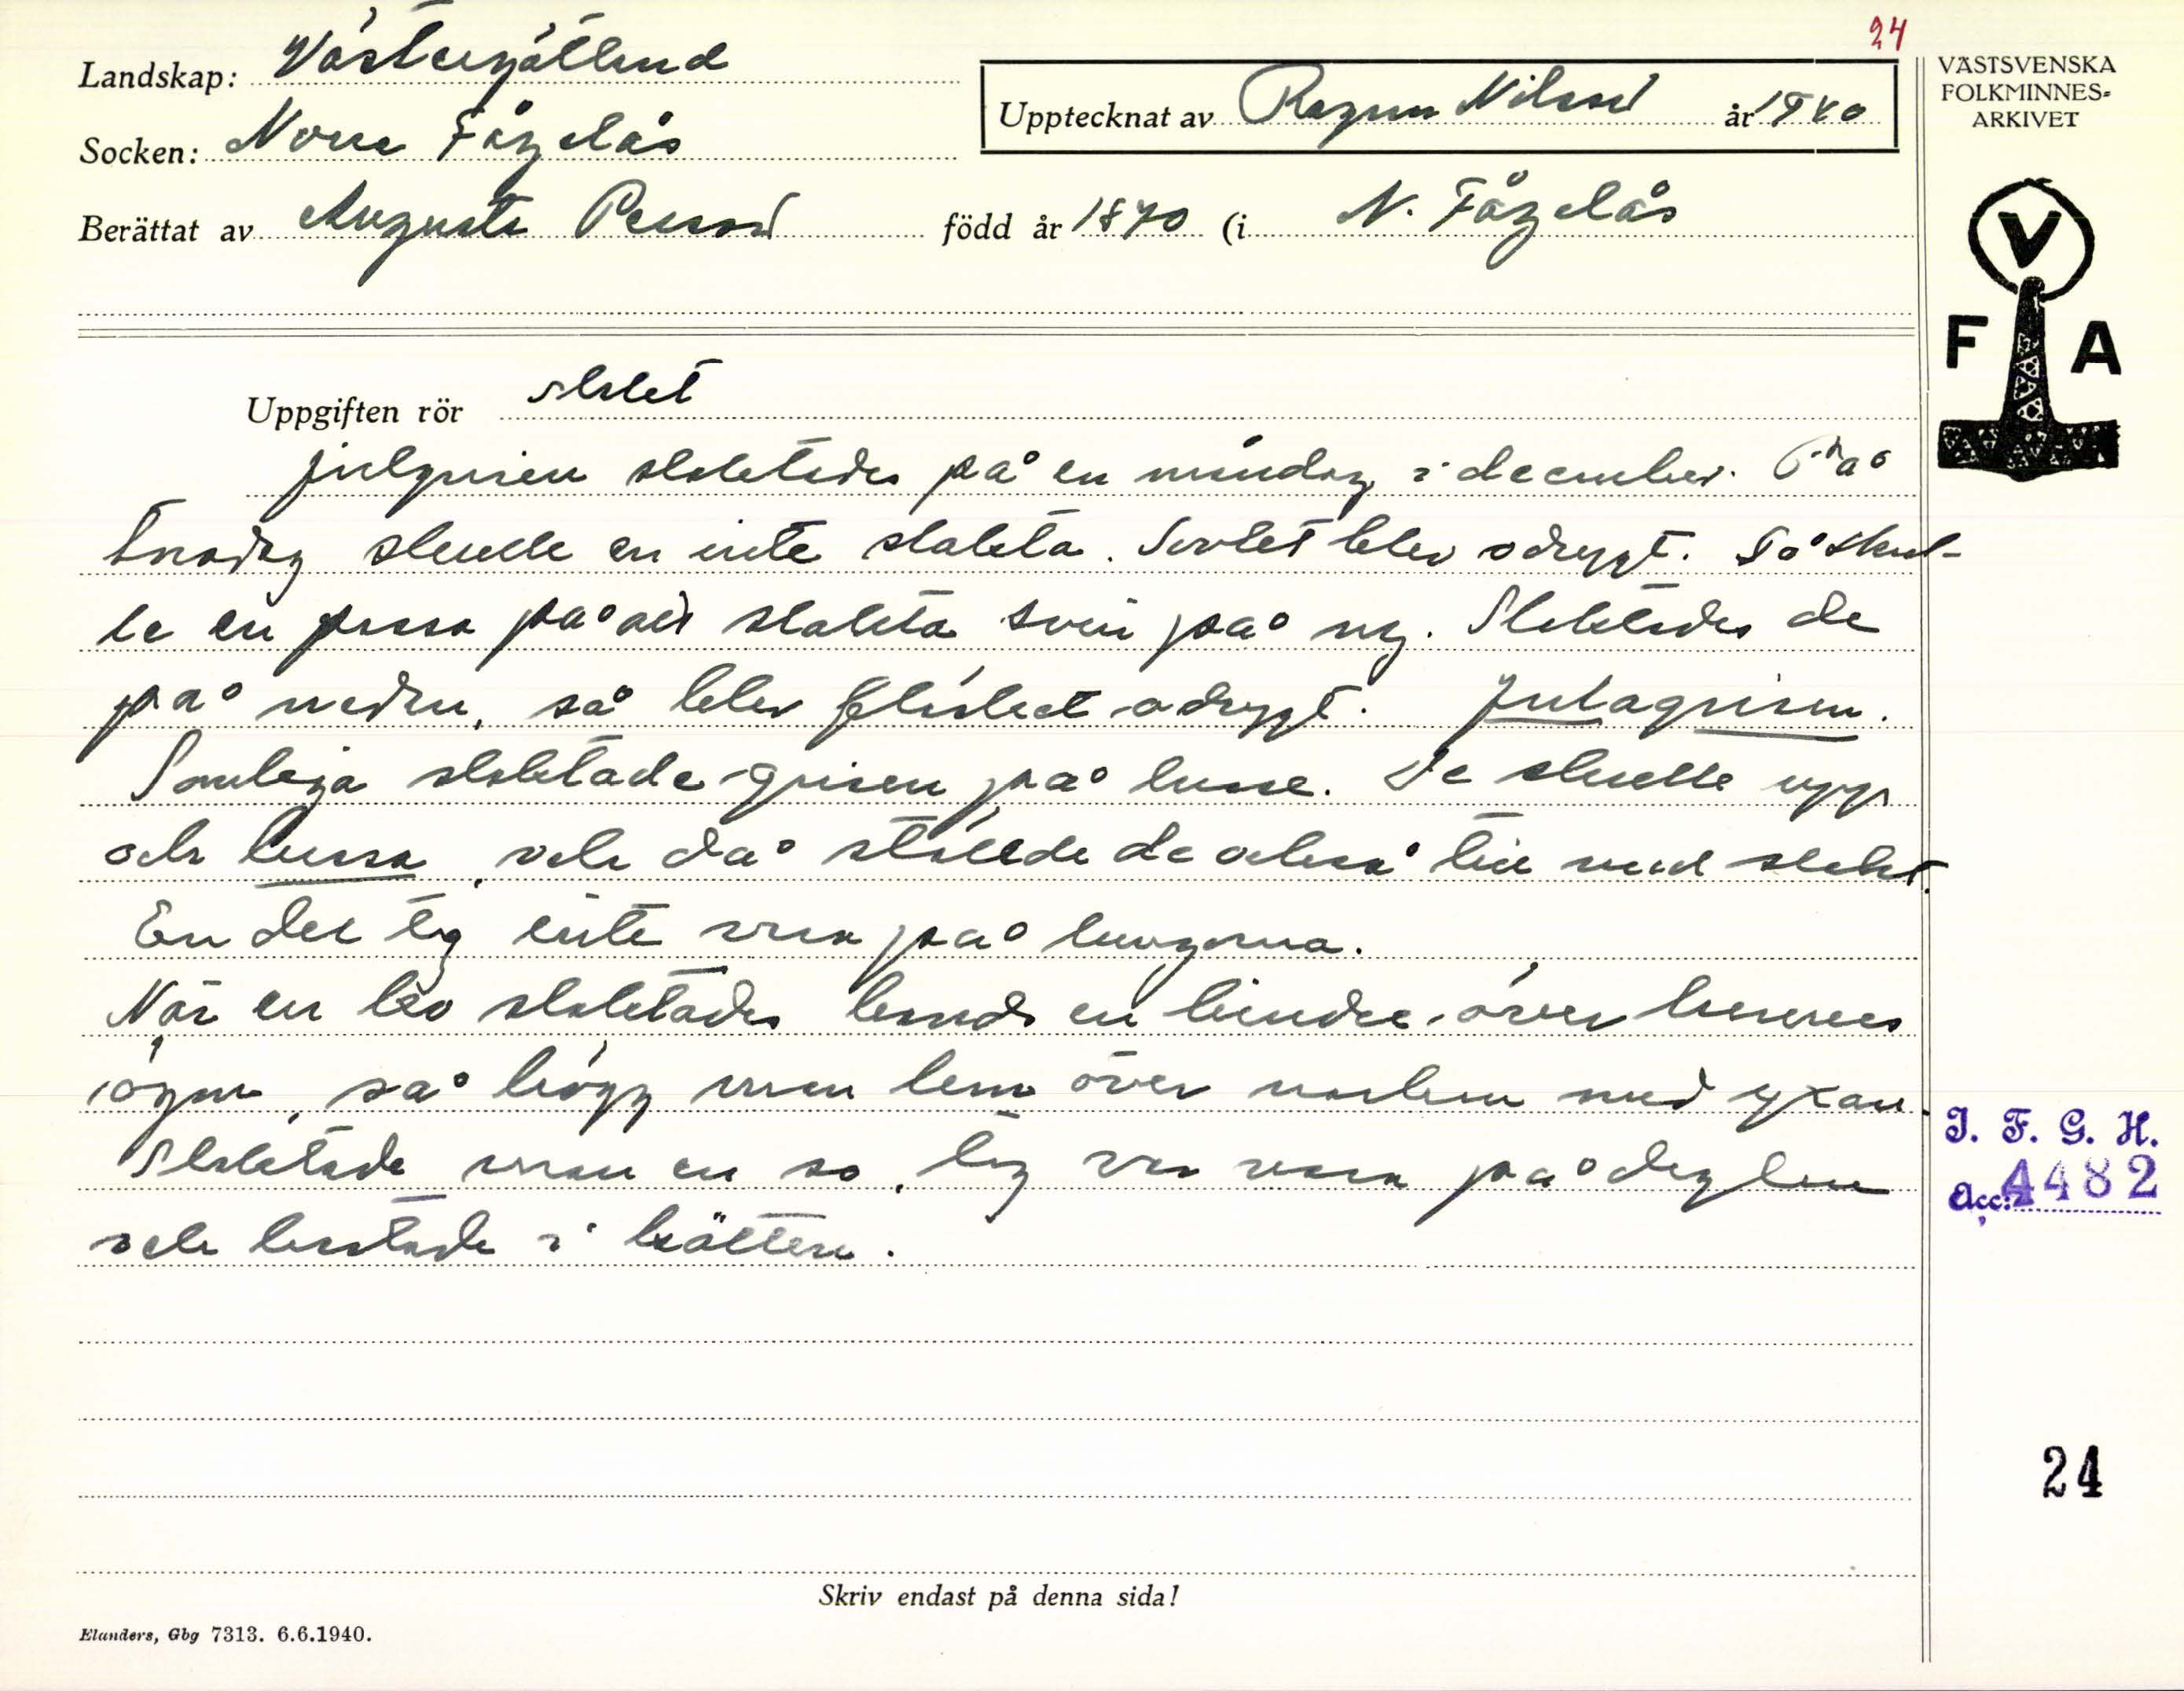 24
Landskap: Västergötland
Socken: Norra Fågelås
Upptecknat av Ragnar Nilsson år 1940
Berättat av Augusta Persson född år 1870 (i N. Fågelås
VÄSTSVENSKA
FOLKMINNES-
ARKIVET
V
F A
Uppgiften rör slakt
julgrisen slaktades på en måndag i december. På
skulle en inte slakta. blev odrygt. Så skul-
le en passa på att slakta svin på ny. Slaktades de
på nedan, så blev fläsket odrygt. Julagrisen.
Somliga slaktade grisen på lusse. De skulle upp
och lussa, och då ställde de också till med slakt.
En del tog inte vara på lungorna.
När en ko slaktades band en bindel över hennes
ögon, så högg man henne över nacken med yxan.
Slaktade man en so, tog en vara på
och kastade i
I. F. G. H.
Acc: 4482
24
Skriv endast på denna sida!
Elanders, Gbg 7313. 6.6.1940.